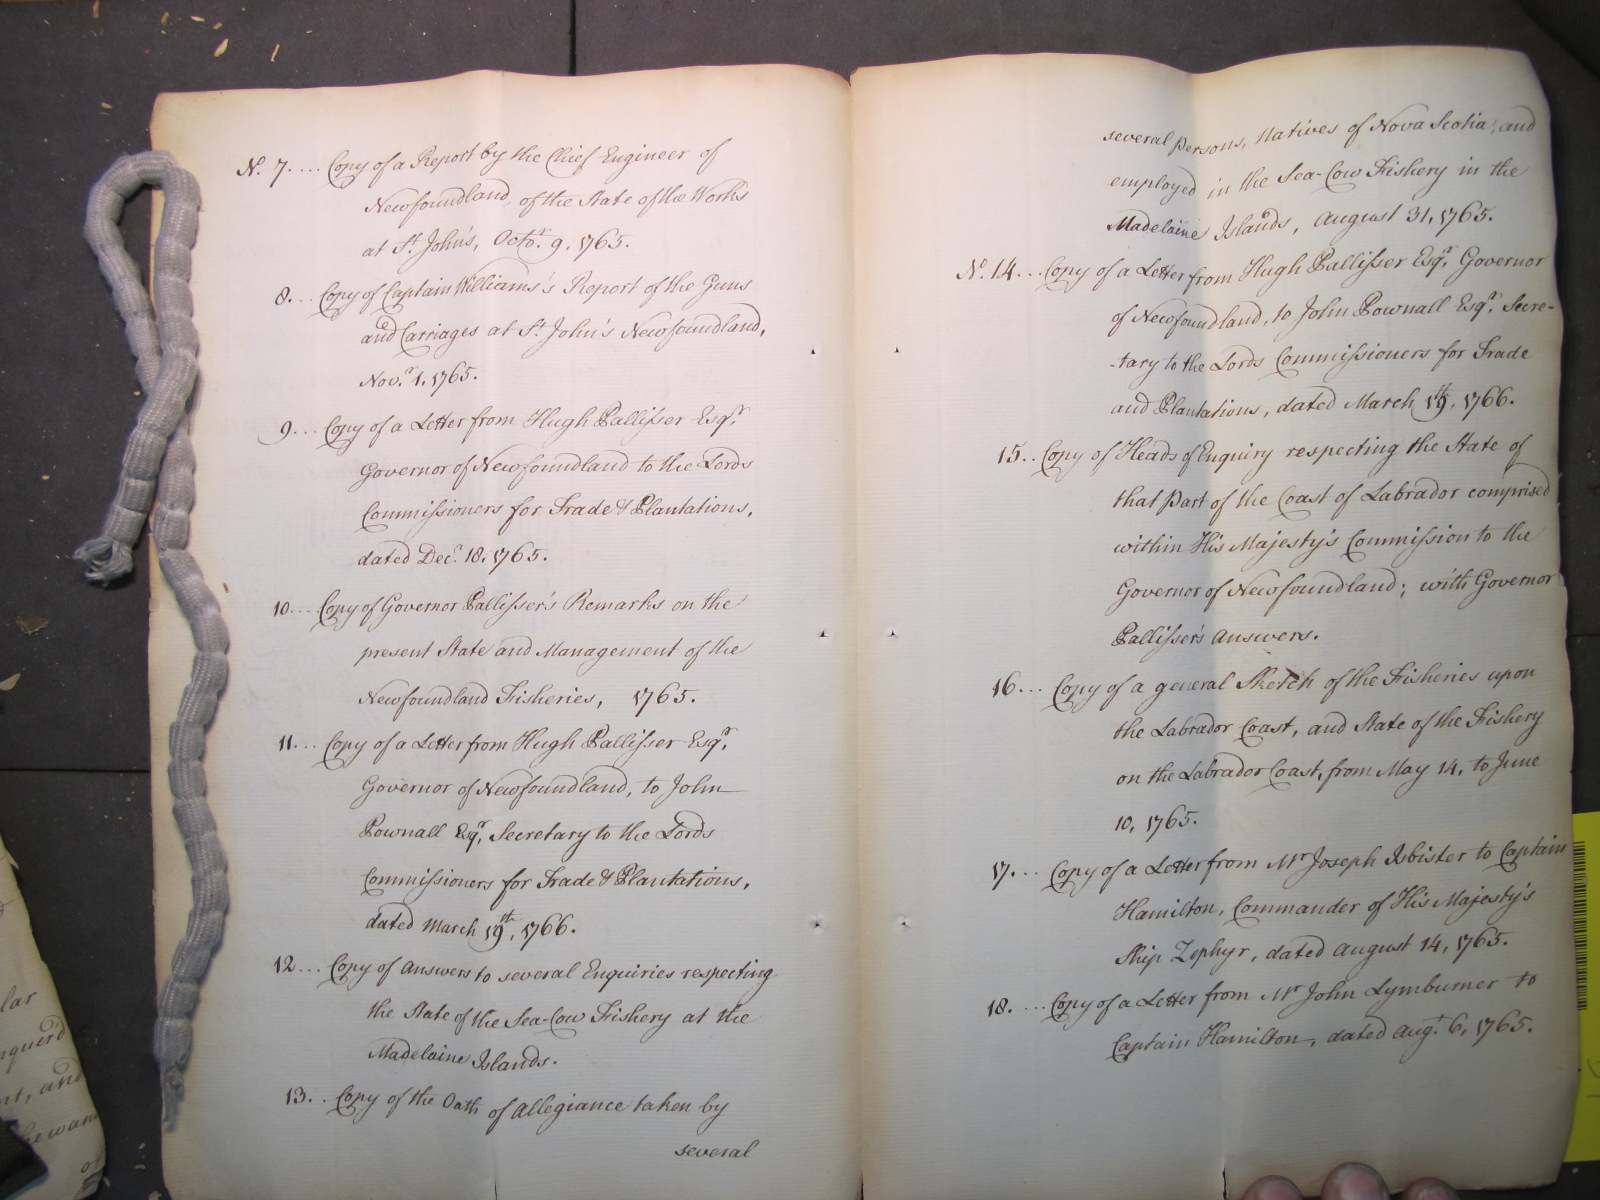 No. 7.... Copy of a Report by the Chief Engineer of
Newfoundland, of the State of the Works
at St. John's, Octor. 9, 1765.
8... Copy of Captain Williams's Report of the Guns
and Carriages at St. John's Newfoundland,
Novr. 1, 1765.
9... Copy of a Letter from Hugh Pallisser Esqr.
Governor of Newfoundland to the Lords
Commissioners for Trade & Plantations,
dated Decr. 18, 1765.
10... Copy of Governor Pallisser's Remarks on the
present State and Management of the
Newfoundland Fisheries, 1765.
11... Copy of a Letter from Hugh Pallisser Esqr.
Governor of Newfoundland, to John
Pownall Esqr. Secretary to the Lords
Commissioners for Trade & Plantations,
dated March 19th, 1766.
12... Copy of Answers to several Enquiries respecting
the State of the Sea-Cow Fishery at the
Madelaine Islands.
13.. Copy of the Oath of Allegiance taken by
several
several Persons, Natives of Nova Scotia, and
employed in the Sea-Cow Fishery in the
Madelaine Islands, August 31, 1765.
No. 14... Copy of a Letter from Hugh Pallisser Esqr. Governor
of Newfoundland, to John Pownall Esqr. Secre-
-tary to the Lords Commissioners for Trade
and Plantations, dated March 19th, 1766.
15.. Copy of Heads of Enquiry respecting the State of
that Part of the Coast of Labrador comprised
within His Majesty's Commission to the
Governor of Newfoundland; with Governor
Pallisser's Answers.
16... Copy of a general Sketch of the Fisheries upon
the Labrador Coast, and State of the Fishery
on the Labrador Coast, from May 14, to June
10, 1765.
17... Copy of a Letter from Mr Joseph Isbister to Captain
Hamilton, Commander of His Majesty's
Ship Zephyr, dated August 14, 1765.
18. ... Copy of a Letter from Mr John Lymburner to
Captain Hamilton, dated Augt. 6, 1765.
lar
nt, and